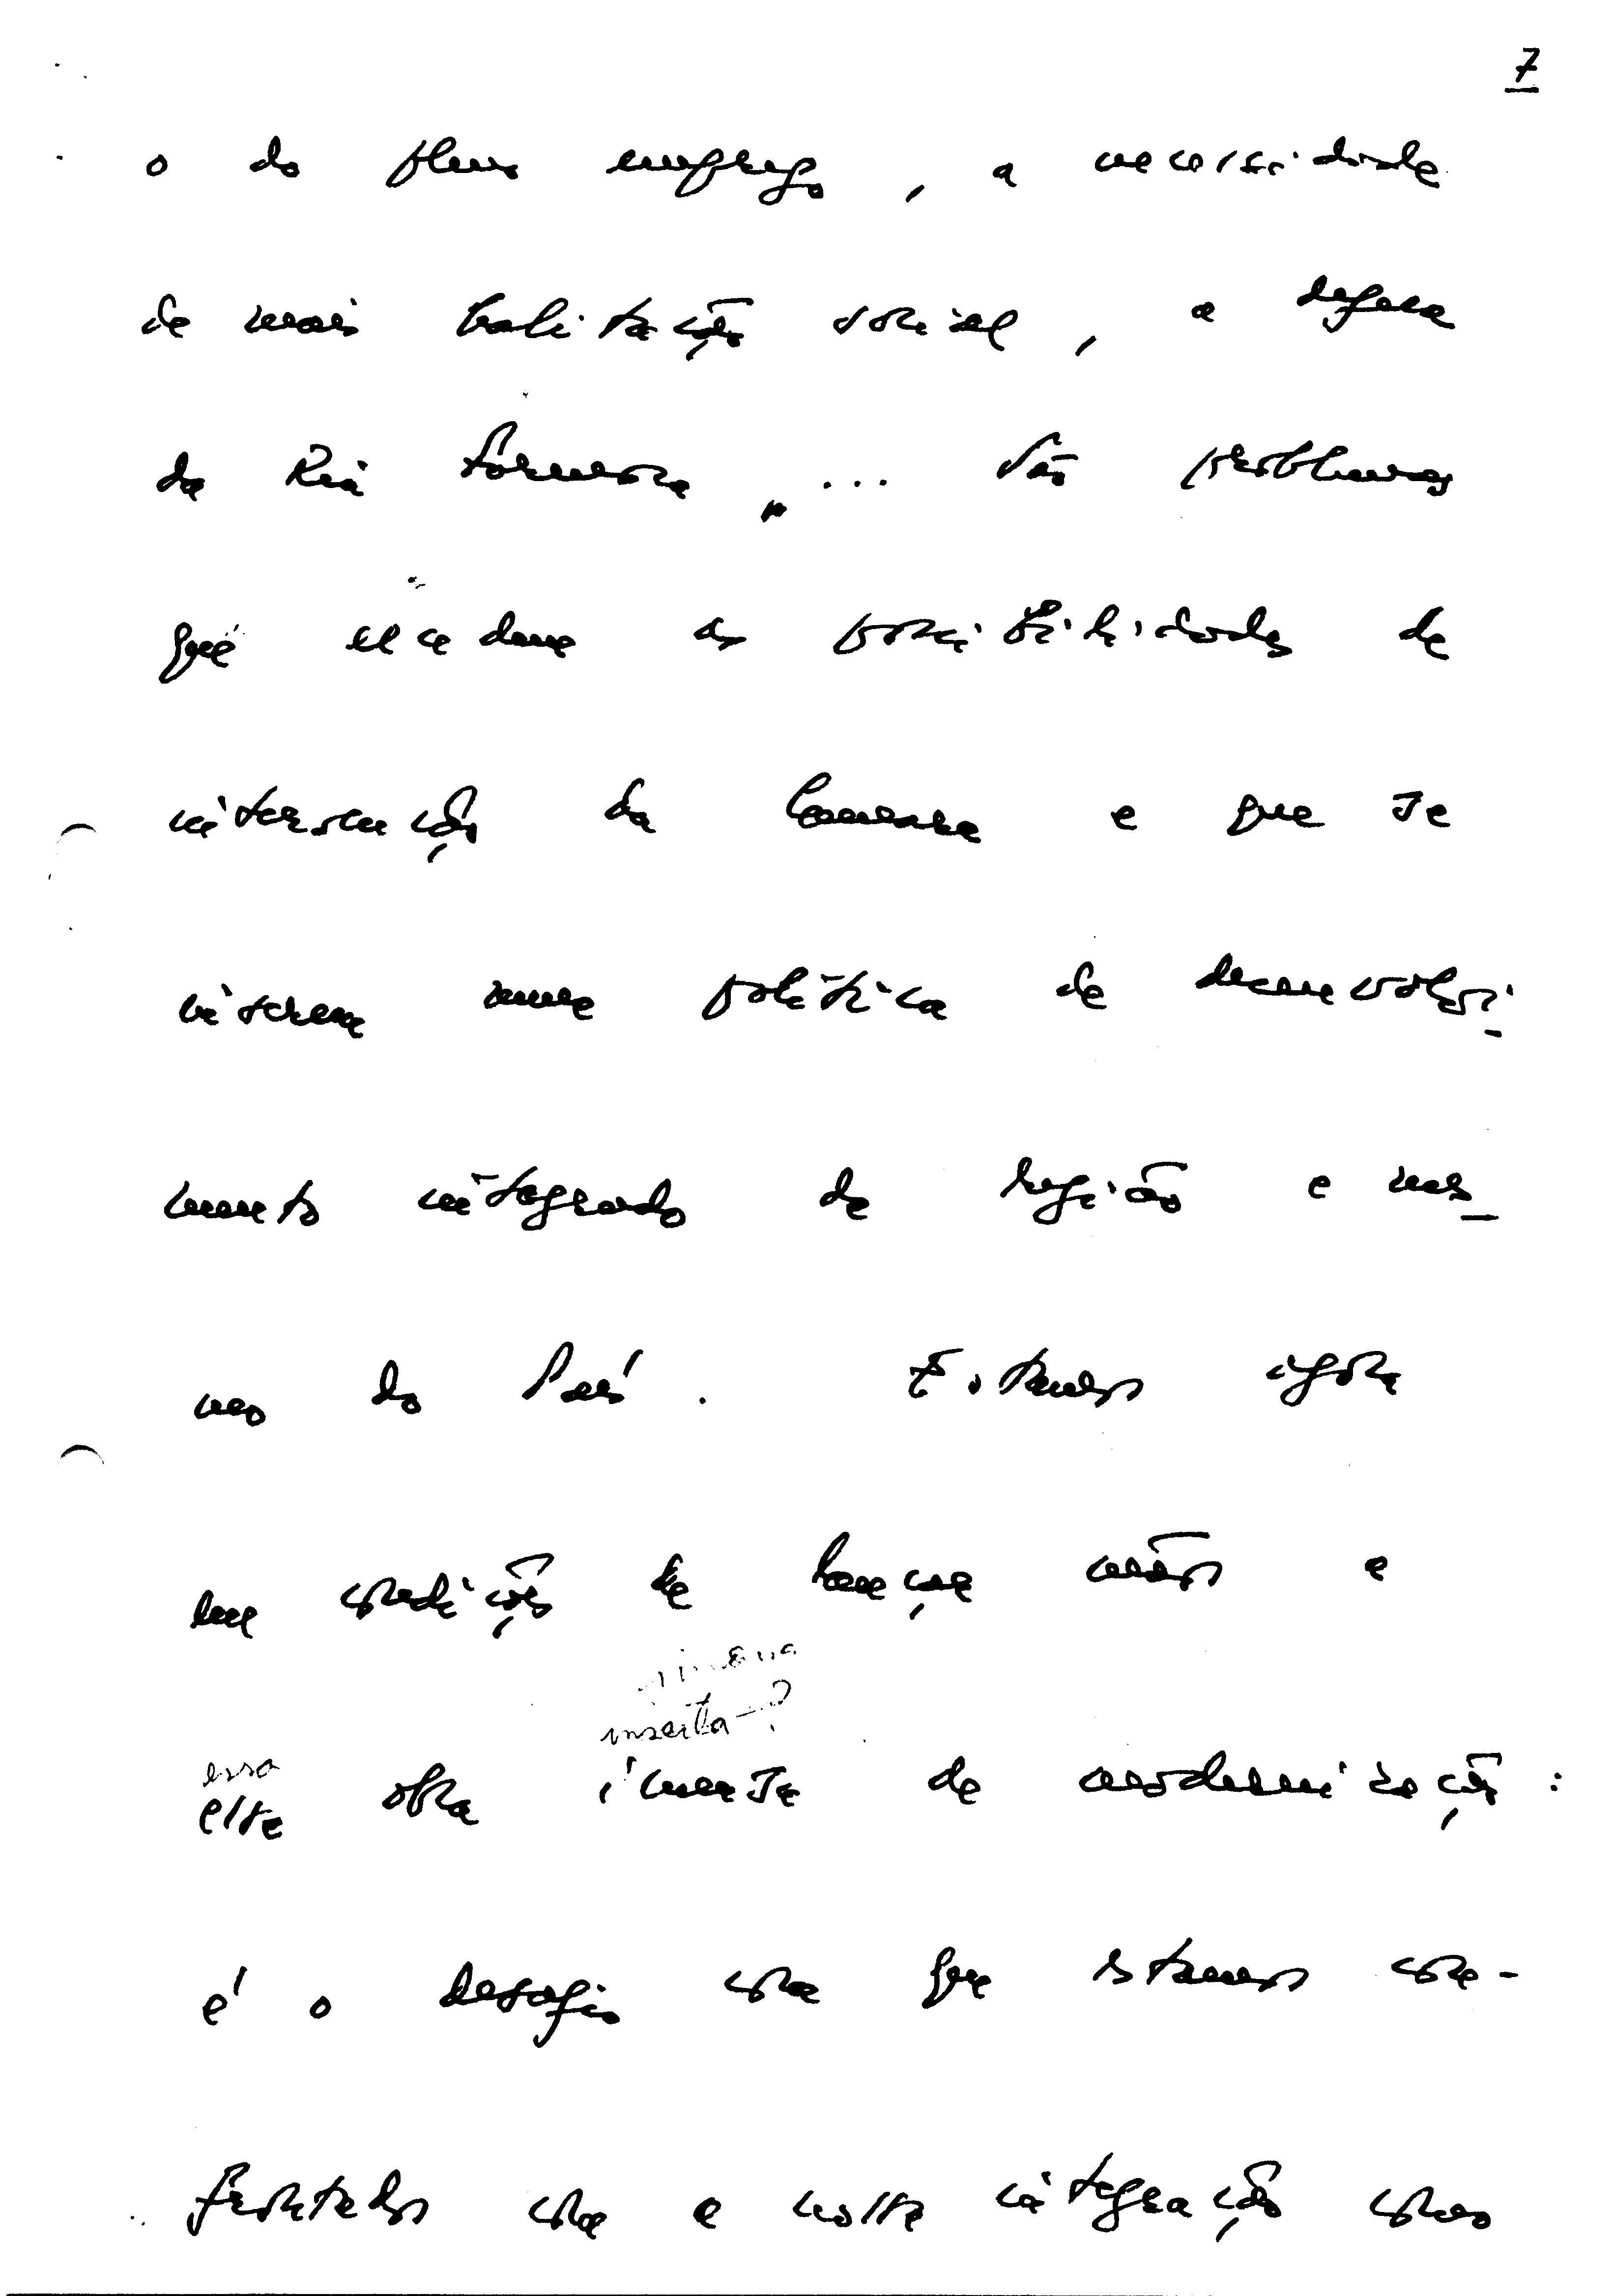 7
o do pleno emprego, a necessidade
de mais habitação social, a defesa
da Ria Formosa, ... São problemas
que excedem as possibilidades de
intervenção da Câmara e que se
inserem numa política de desenvolvi-
mento integrado da região e mes-
mo do País. Estamos agora
em condições de lançar mãos a
essa
esta obra imensa de modernização:
é o desafio com que estamos con-
frontados com a nossa integração como